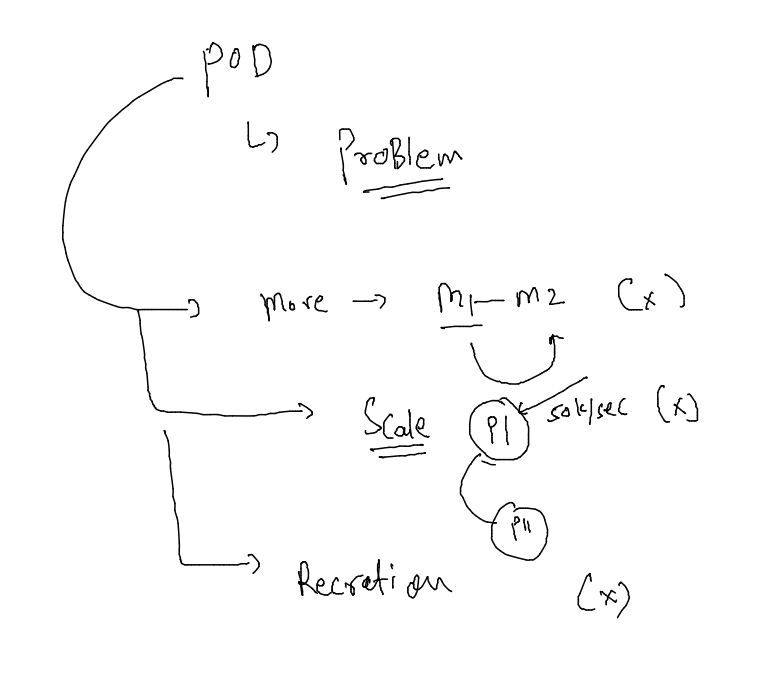 POD
↳ ProBlem
more → m1 — m2 (x)
Scale P1 50k/sec (x)
P11
Recration (x)